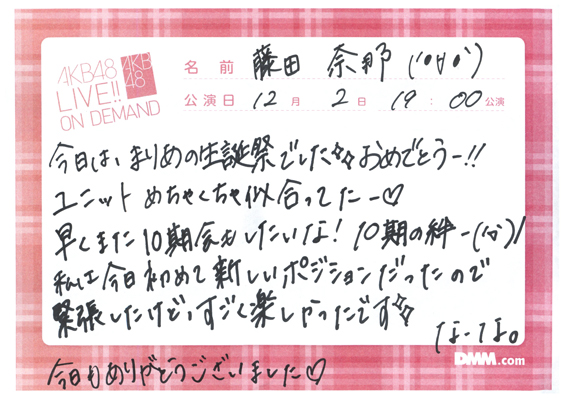 AKB48
LIVE!!
ON DEMAND
AKB
48
名前 藤田 奈那 (’O’)
公演日 12月 2日 19:00公演
今日は、まりめの生誕祭でした☆☆おめでとうー!!
ユニットめちゃくちゃ似合ってたー♡
早くまた10期会もしたいな! 10期の絆ー
私は今日初めて新しいポジションだったので
緊張したけど、すごく楽しかったです☆
なーな。
今日もありがとうございました♡
DMM.com